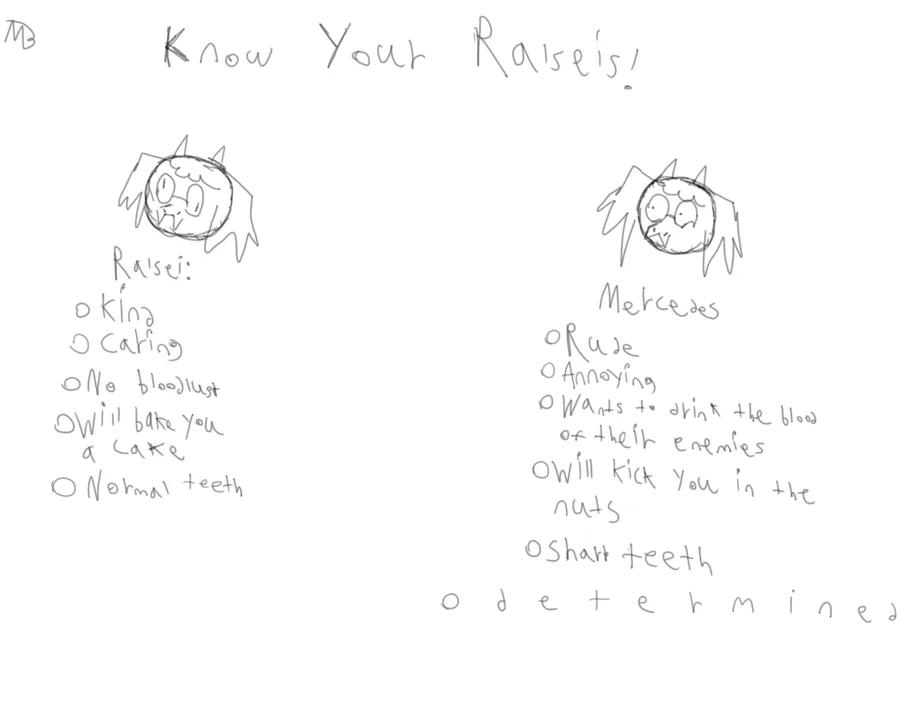 MB
Know Your Ralseis!
Ralsei:
Kind
Caring
No bloodlust
Will bake you
a cake
Normal teeth
Mercedes
Rude
Annoying
Wants to drink the blood
of their enemies
Will kick you in the
nuts
Sharp teeth
determined